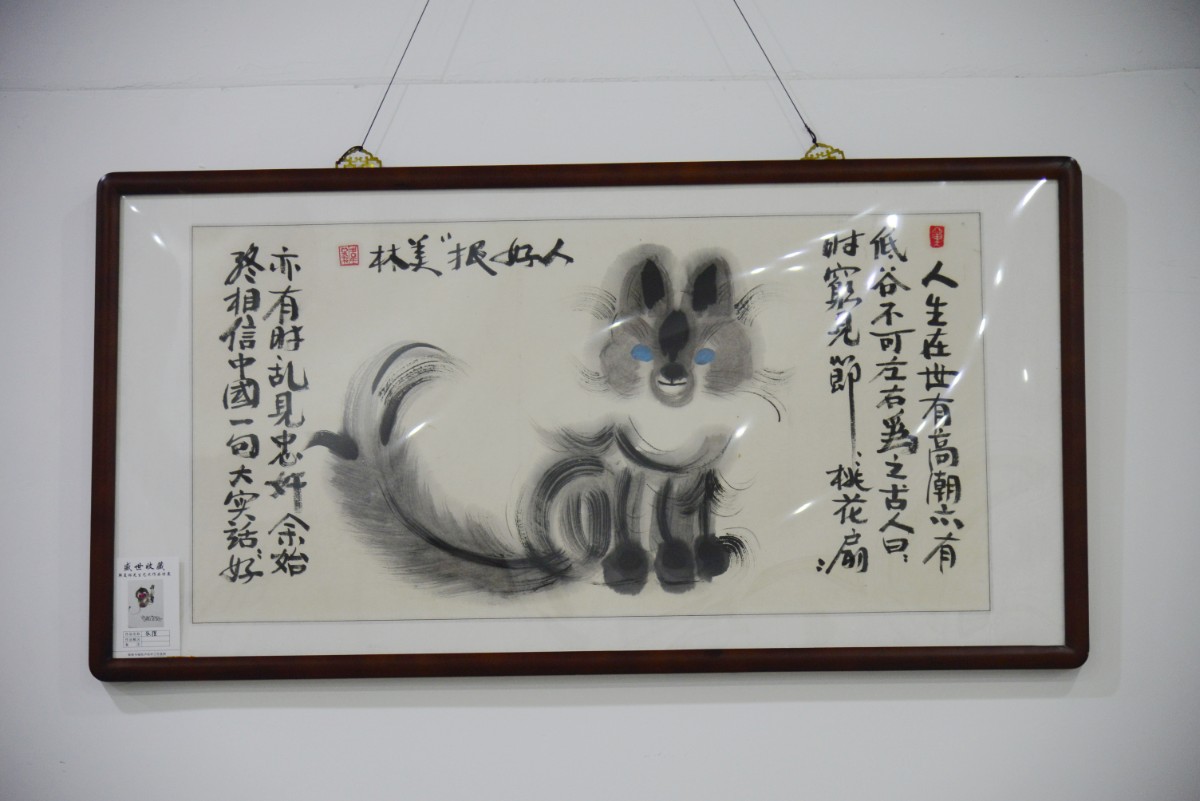 人生在世有高潮亦有
低谷不可左右為之古人曰:
时窮见節、桃花扇:
亦有时乱見忠奸余始
终相信中國一句大实话"好
人好报"美林
盛世收藏